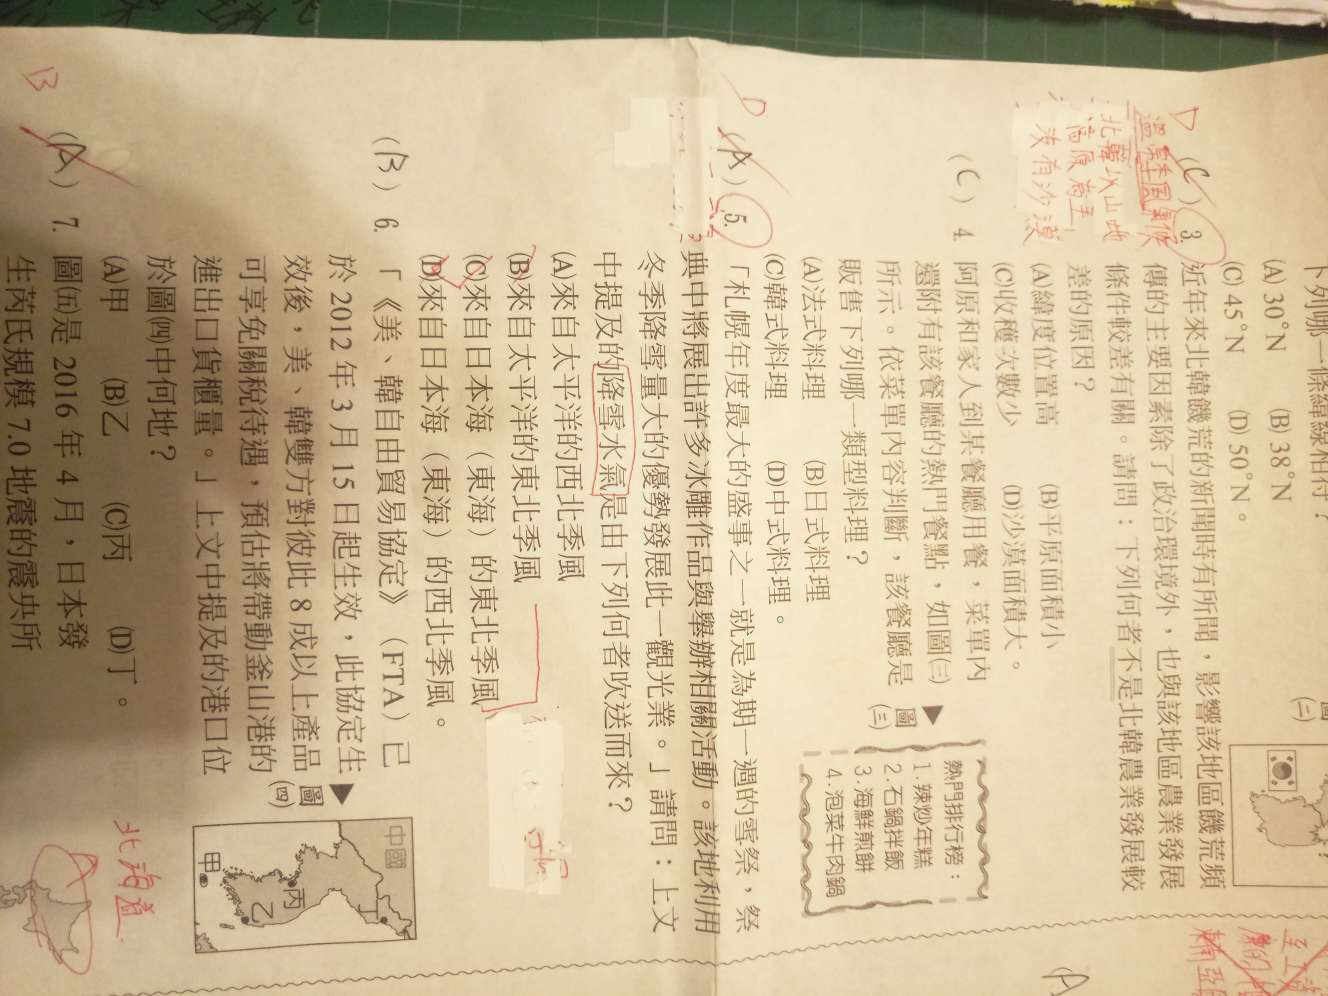 下列哪一條緯線相符？
(A) 30°N (B) 38°N
(C) 45°N (D) 50°N。
圖(二)
D
(C) 3. 近年來北韓饑荒的新聞時有所聞，影響該地區饑荒頻
傳的主要因素除了政治環境外，也與該地區農業發展
條件較差有關。請問：下列何者不是北韓農業發展較
差的原因？
(A)緯度位置高 (B)平原面積小
(C)收穫次數少 (D)沙漠面積大。
溫帶季風氣候
北韓以山地
高原為主
沒有沙漠
(C) 4. 阿原和家人到某餐廳用餐，菜單內
還附有該餐廳的熱門餐點，如圖(三)
所示。依菜單內容判斷，該餐廳是
販售下列哪一類型料理？
(A)法式料理 (B)日式料理
(C)韓式料理 (D)中式料理。
圖(三)
熱門排行榜：
1.辣炒年糕
2.石鍋拌飯
3.海鮮煎餅
4.泡菜牛肉鍋
D
(A) 5. 「札幌年度最大的盛事之一就是為期一週的雪祭，祭
典中將展出許多冰雕作品與舉辦相關活動。該地利用
冬季降雪量大的優勢發展此一觀光業。」請問：上文
中提及的降雪水氣是由下列何者吹送而來？
(A)來自太平洋的西北季風
(B)來自太平洋的東北季風
(C)來自日本海（東海）的東北季風
(D)來自日本海（東海）的西北季風。
(B) 6. 「《美、韓自由貿易協定》（FTA）已
於 2012 年 3 月 15 日起生效，此協定生
效後，美、韓雙方對彼此 8 成以上產品
可享免關稅待遇，預估將帶動釜山港的
進出口貨櫃量。」上文中提及的港口位
於圖(四)中何地？
(A)甲 (B)乙 (C)丙 (D)丁。
圖(四)
中國
丁
丙
乙
甲
B
(A) 7. 圖(五)是 2016 年 4 月，日本發
生芮氏規模 7.0 地震的震央所
北海道
A
(A)